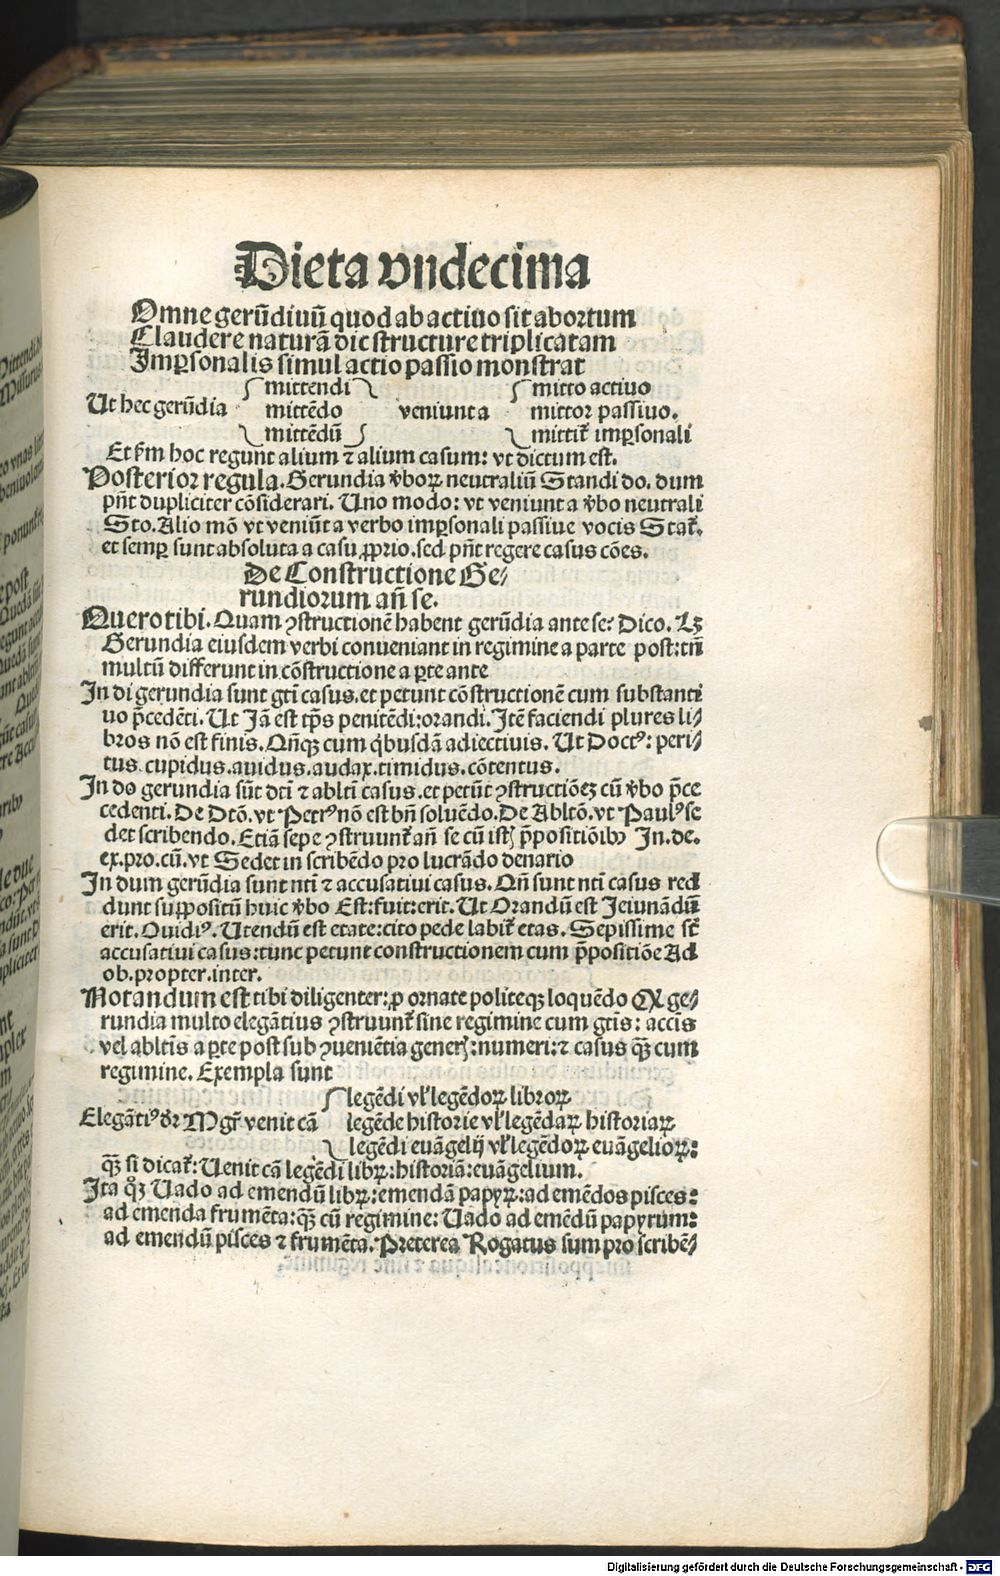 Dieta vndecima
Omne gerūdiuū quod ab actiuo sit abortum
Claudere naturā dic structure triplicatam
Imꝑsonalis simul actio passio monstrat
mittendi mitto actiuo
Ut hec gerūdia mittēdo veniunt a mittor passiuo.
mittēdū mittit᷑ imꝑsonali
Et ẜm hoc regunt alium ⁊ alium casum: vt dictum est.
Posterior regula. Gerundia v̄boꝝ neutraliū Standi do. dum
pn̄t dupliciter cōsiderari. Uno modo: vt veniunt a v̄bo neutrali
Sto. Alio mō vt veniūt a verbo imꝑsonali passiue vocis Stat᷑.
et semꝑ sunt absoluta a casu ꝓprio. sed pn̄t regere casus cōes.
De Constructione Ge⸗
rundiorum an̄ se.
Quero tibi. Quam ꝯstructionē habent gerūdia ante se? Dico. Lꝫ
Gerundia eiusdem verbi conueniant in regimine a parte post: tn̄
multū differunt in cōstructione a ꝑte ante
In di gerundia sunt gtī casus. et petunt cōstructionē cum substanti
uo p̄cedēti. Ut Iā est tp̄s penitēdi: orandi. Itē faciendi plures li⸗
bros nō est finis. Qn̄qꝫ cum qͥbusdā adiectiuis. Ut Doctꝰ: peri⸗
tus. cupidus. auidus. audax. timidus. cōtentus.
In do gerundia sūt dtī ⁊ abltī casus. et petūt ꝯstructiōeꝫ cū v̄bo p̄ce
cedenti. De Dtō. vt Petrꝰ nō est bn̄ soluēdo. De Abltō. vt Paulꝰ se
det scribendo. Etiā sepe ꝯstruunt᷑ an̄ se cū istꝭ p̄positiōibꝰ In. de.
ex. pro. cū. vt Sedet in scribēdo pro lucrādo denario
In dum gerūdia sunt ntī ⁊ accusatiui casus. Qn̄ sunt ntī casus red
dunt suppositū huic v̄bo Est: fuit: erit. Ut Orandū est Ieiunādū
erit. Ouidiꝰ. Utendū est etate: cito pede labit᷑ etas. Sepissime st̄
accusatiui casus: tunc petunt constructionem cum p̄positiōe Ad
ob. propter. inter.
Notandum est tibi diligenter: ꝓ ornate politeqꝫ loquēdo Qꝫ ge⸗
rundia multo elegātius ꝯstruunt᷑ sine regimine cum gtīs: accīs
vel abltīs a ꝑte post sub ꝯueniētia generꝭ: numeri: ⁊ casus qꝫ̄ cum
regimine. Exempla sunt
legēdi vl̓ legēdoꝝ libroꝝ
Elegātiꝰ dr̄ Mgr̄ venit cā legēde historie vl̓ legēdaꝝ historiaꝝ
legēdi euāgelij vl̓ legēdoꝝ euāgelioꝝ:
qꝫ̄ si dicat᷑: Uenit cā legēdi libꝝ: historiā: euāgelium.
Ita qͦꝫ Uado ad emendū libꝝ: emendā papyꝝ: ad emēdos pisces:
ad emenda frumēta: qꝫ̄ cū regimine: Uado ad emēdū papyrum:
ad emendū pisces ⁊ frumēta. Preterea Rogatus sum pro scribē⸗
Digitalisierung gefördert durch die Deutsche Forschungsgemeinschaft - DFG